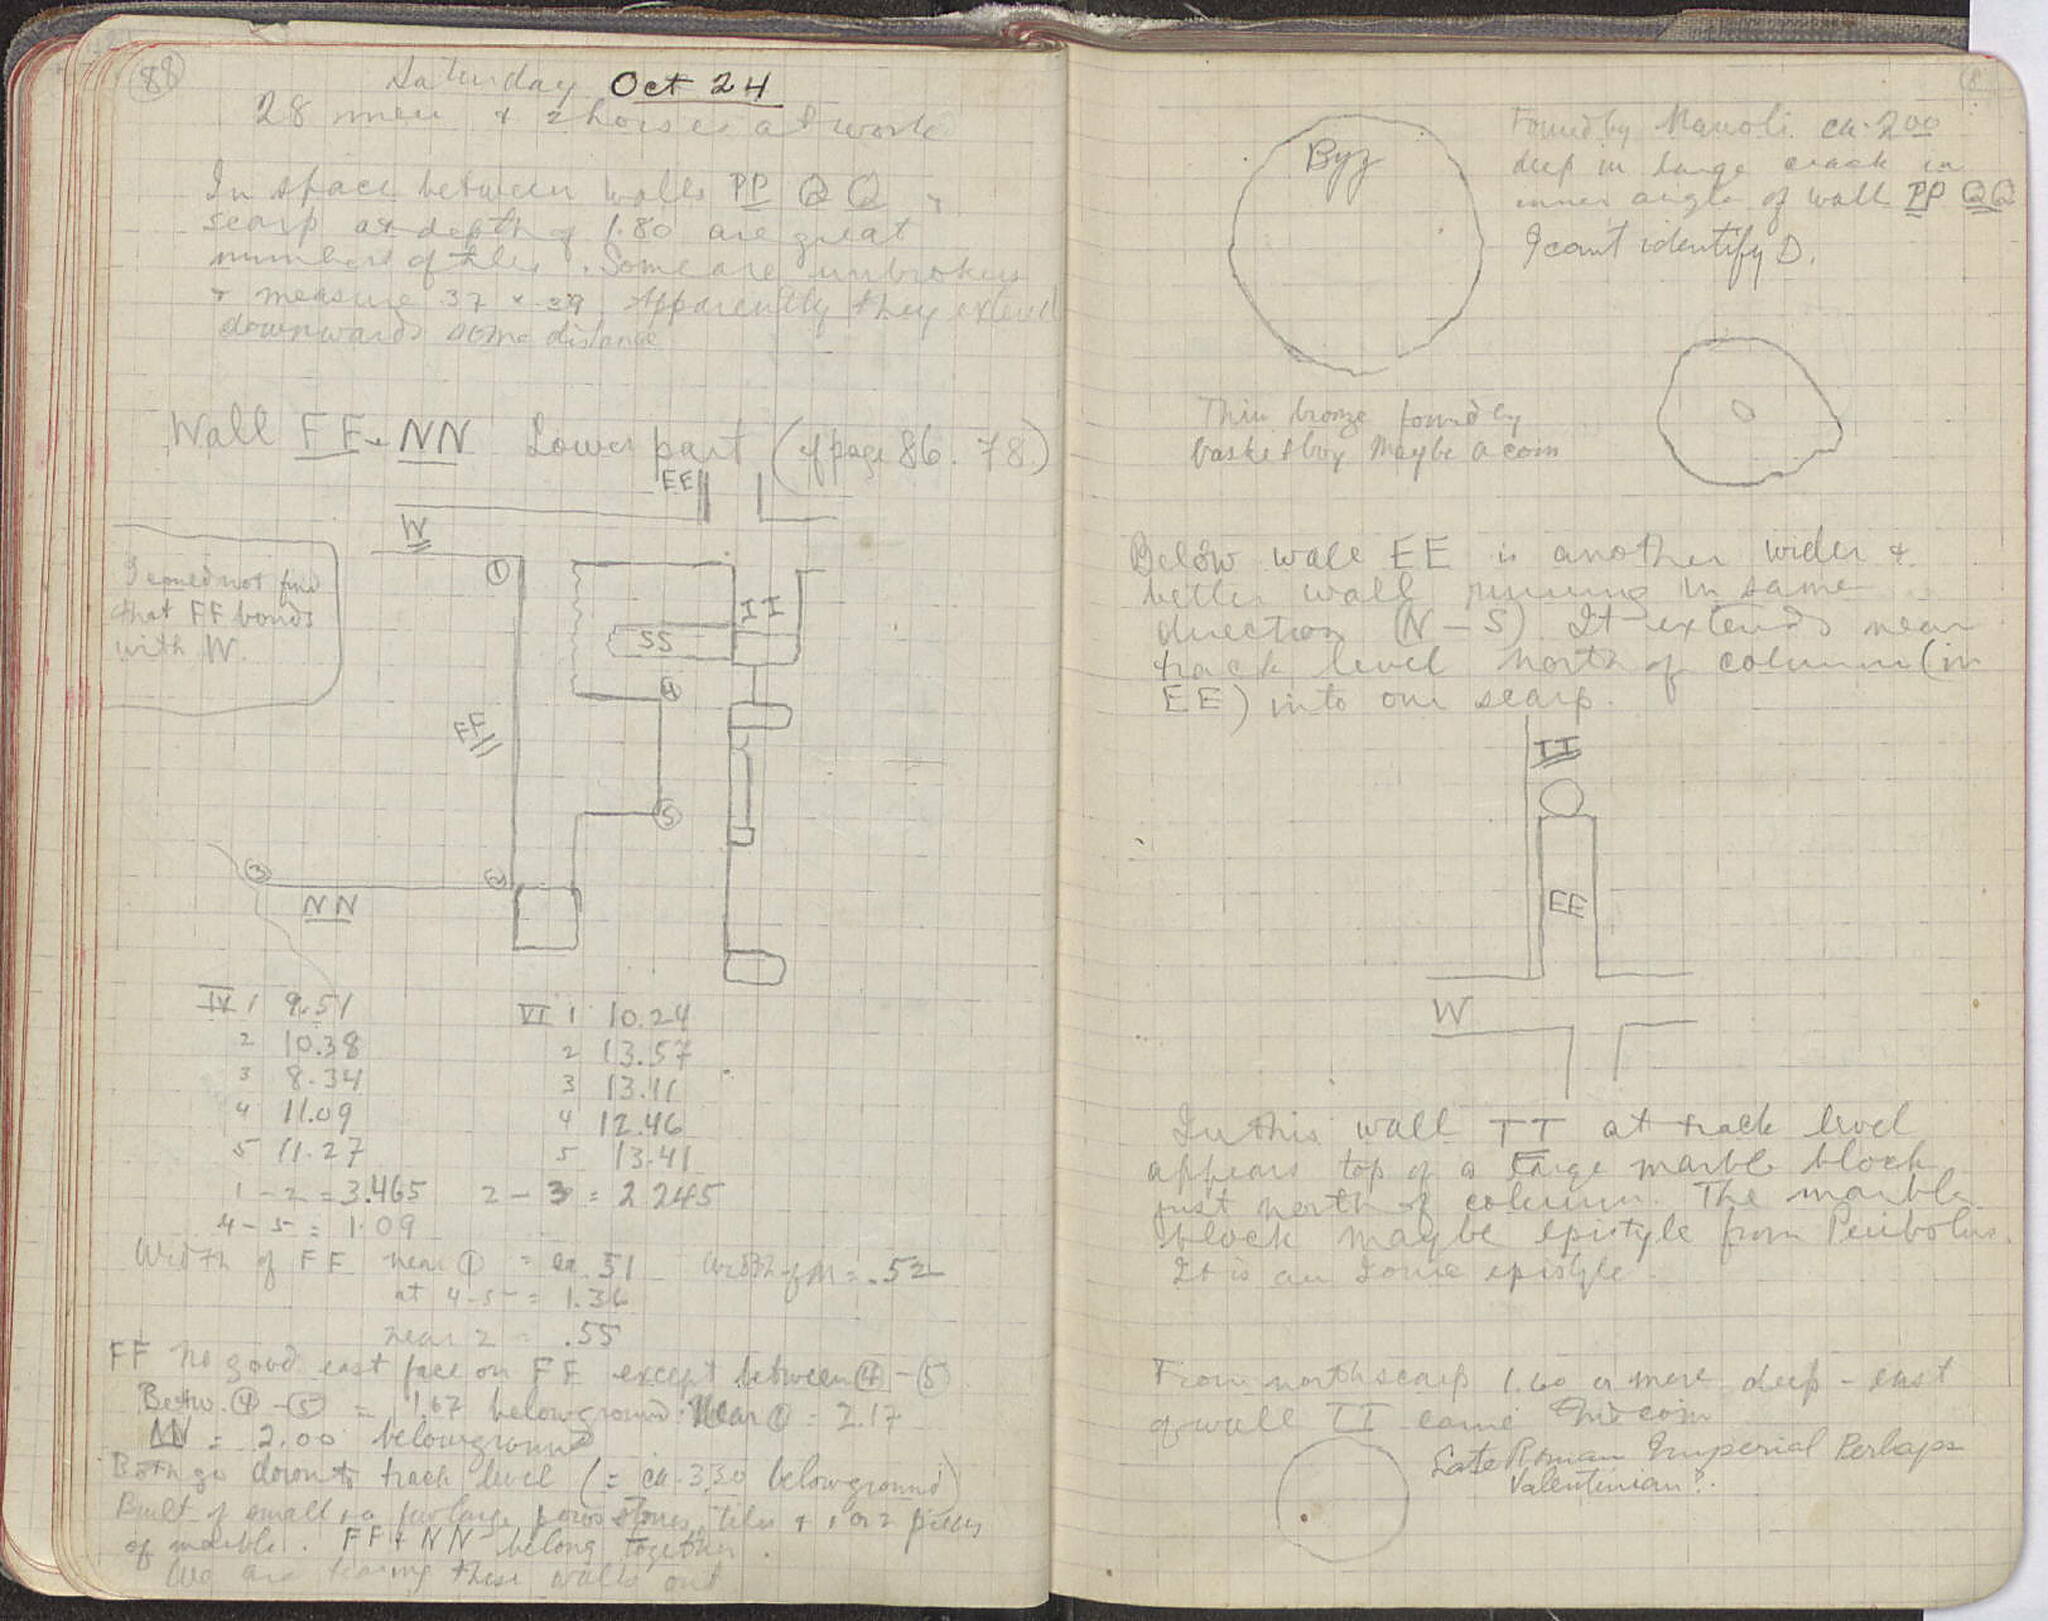 88
Saturday Oct 24
28 men & 2 horses at work
In space between walls PP QQ &
scarp at depth of 1.80 are great
numbers of tiles. Some are unbroken
& measure .37 × .29 Apparently they extend
downwards some distance
Wall FF & NN Lower part (cf page 86. 78)
EE
W
①
I could not find
that FF bonds
with W.
II
SS
④
FF
⑤
③
②
NN
IV 1 9.51
2 10.38
3 8.34
4 11.09
5 11.27
VI 1 10.24
2 13.57
3 13.41
4 12.46
5 13.41
1 - 2 = 3.465 2 - 3 = 2.245
4 - 5 = 1.09
Width of FF near ① = ca .51 Width of NN = .52
at 4-5 = 1.36
near 2 = .55
FF No good east face on FF except between ④ - ⑤
Betw. ④ - ⑤ = 1.67 below ground. Near ① = 2.17
NN = 2.00 below ground
Both go down to track level (= ca. 3.30 below ground)
Built of small & a few large poros stones, tiles & 1 or 2 pieces
of marble. FF & NN belong together.
We are tearing these walls out
Byz
Found by Manoli ca. 2.00
deep in large crack in
inner angle of wall PP QQ
I can't identify D.
Thin bronze found by
basket boy Maybe a coin
Below wall EE is another wider &
better wall running in same
direction (N - S) It extends near
track level north of column (in
EE) into our scarp.
II
EE
W
In this wall TT at track level
appears top of a large marble block
just north of column. The marble
block may be epistyle from Peribolos.
It is an Ionic epistyle
From north scarp 1.60 or more deep - east
of wall II came this coin
Late Roman Imperial Perhaps
Valentinian?.